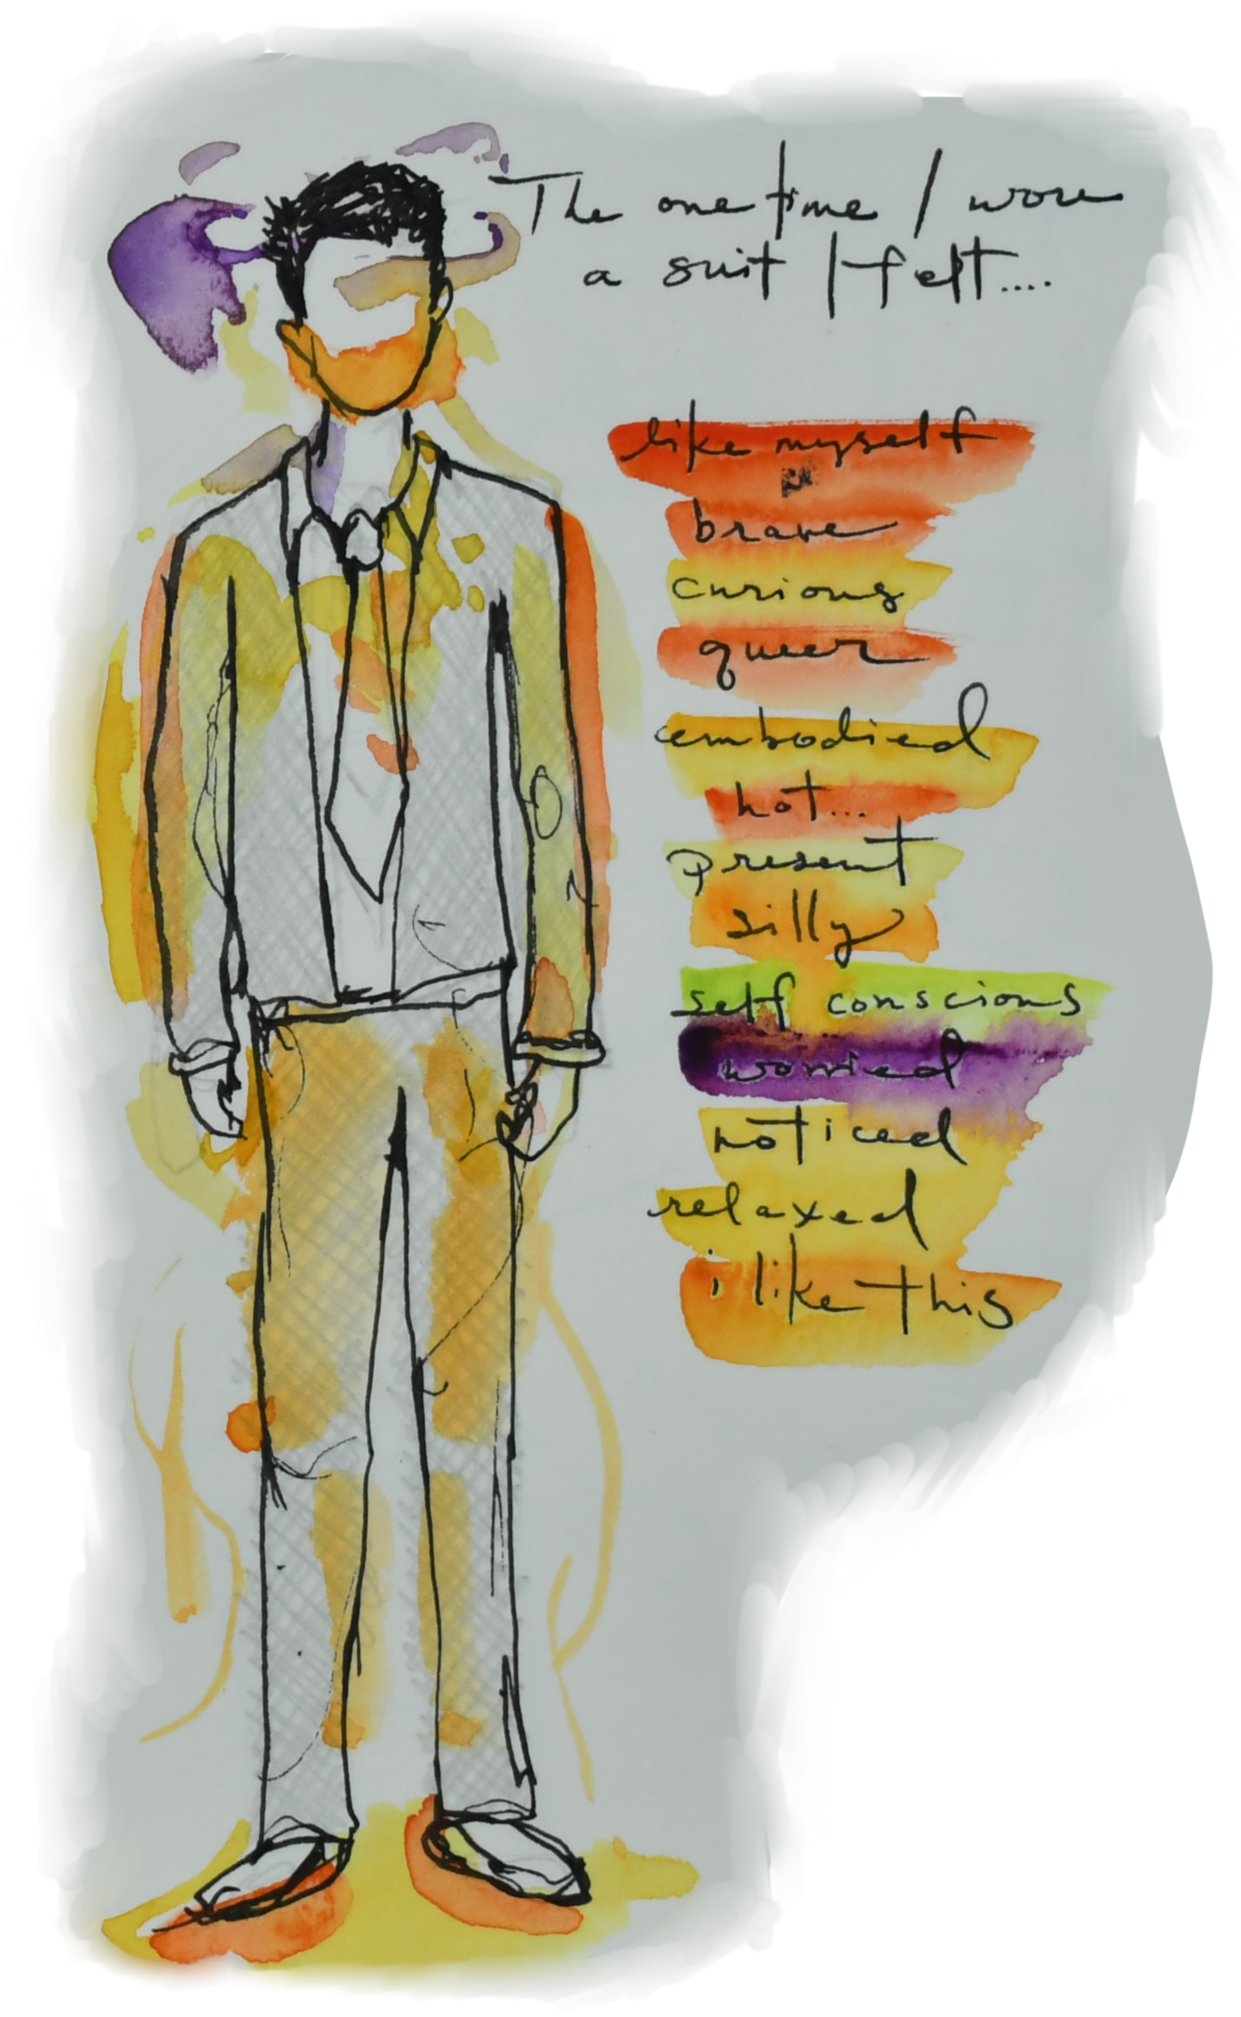 The one time I wore
a suit I felt....
like myself
brave
curious
queer
embodied
hot...
present
silly
self conscious
worried
noticed
relaxed
i like this